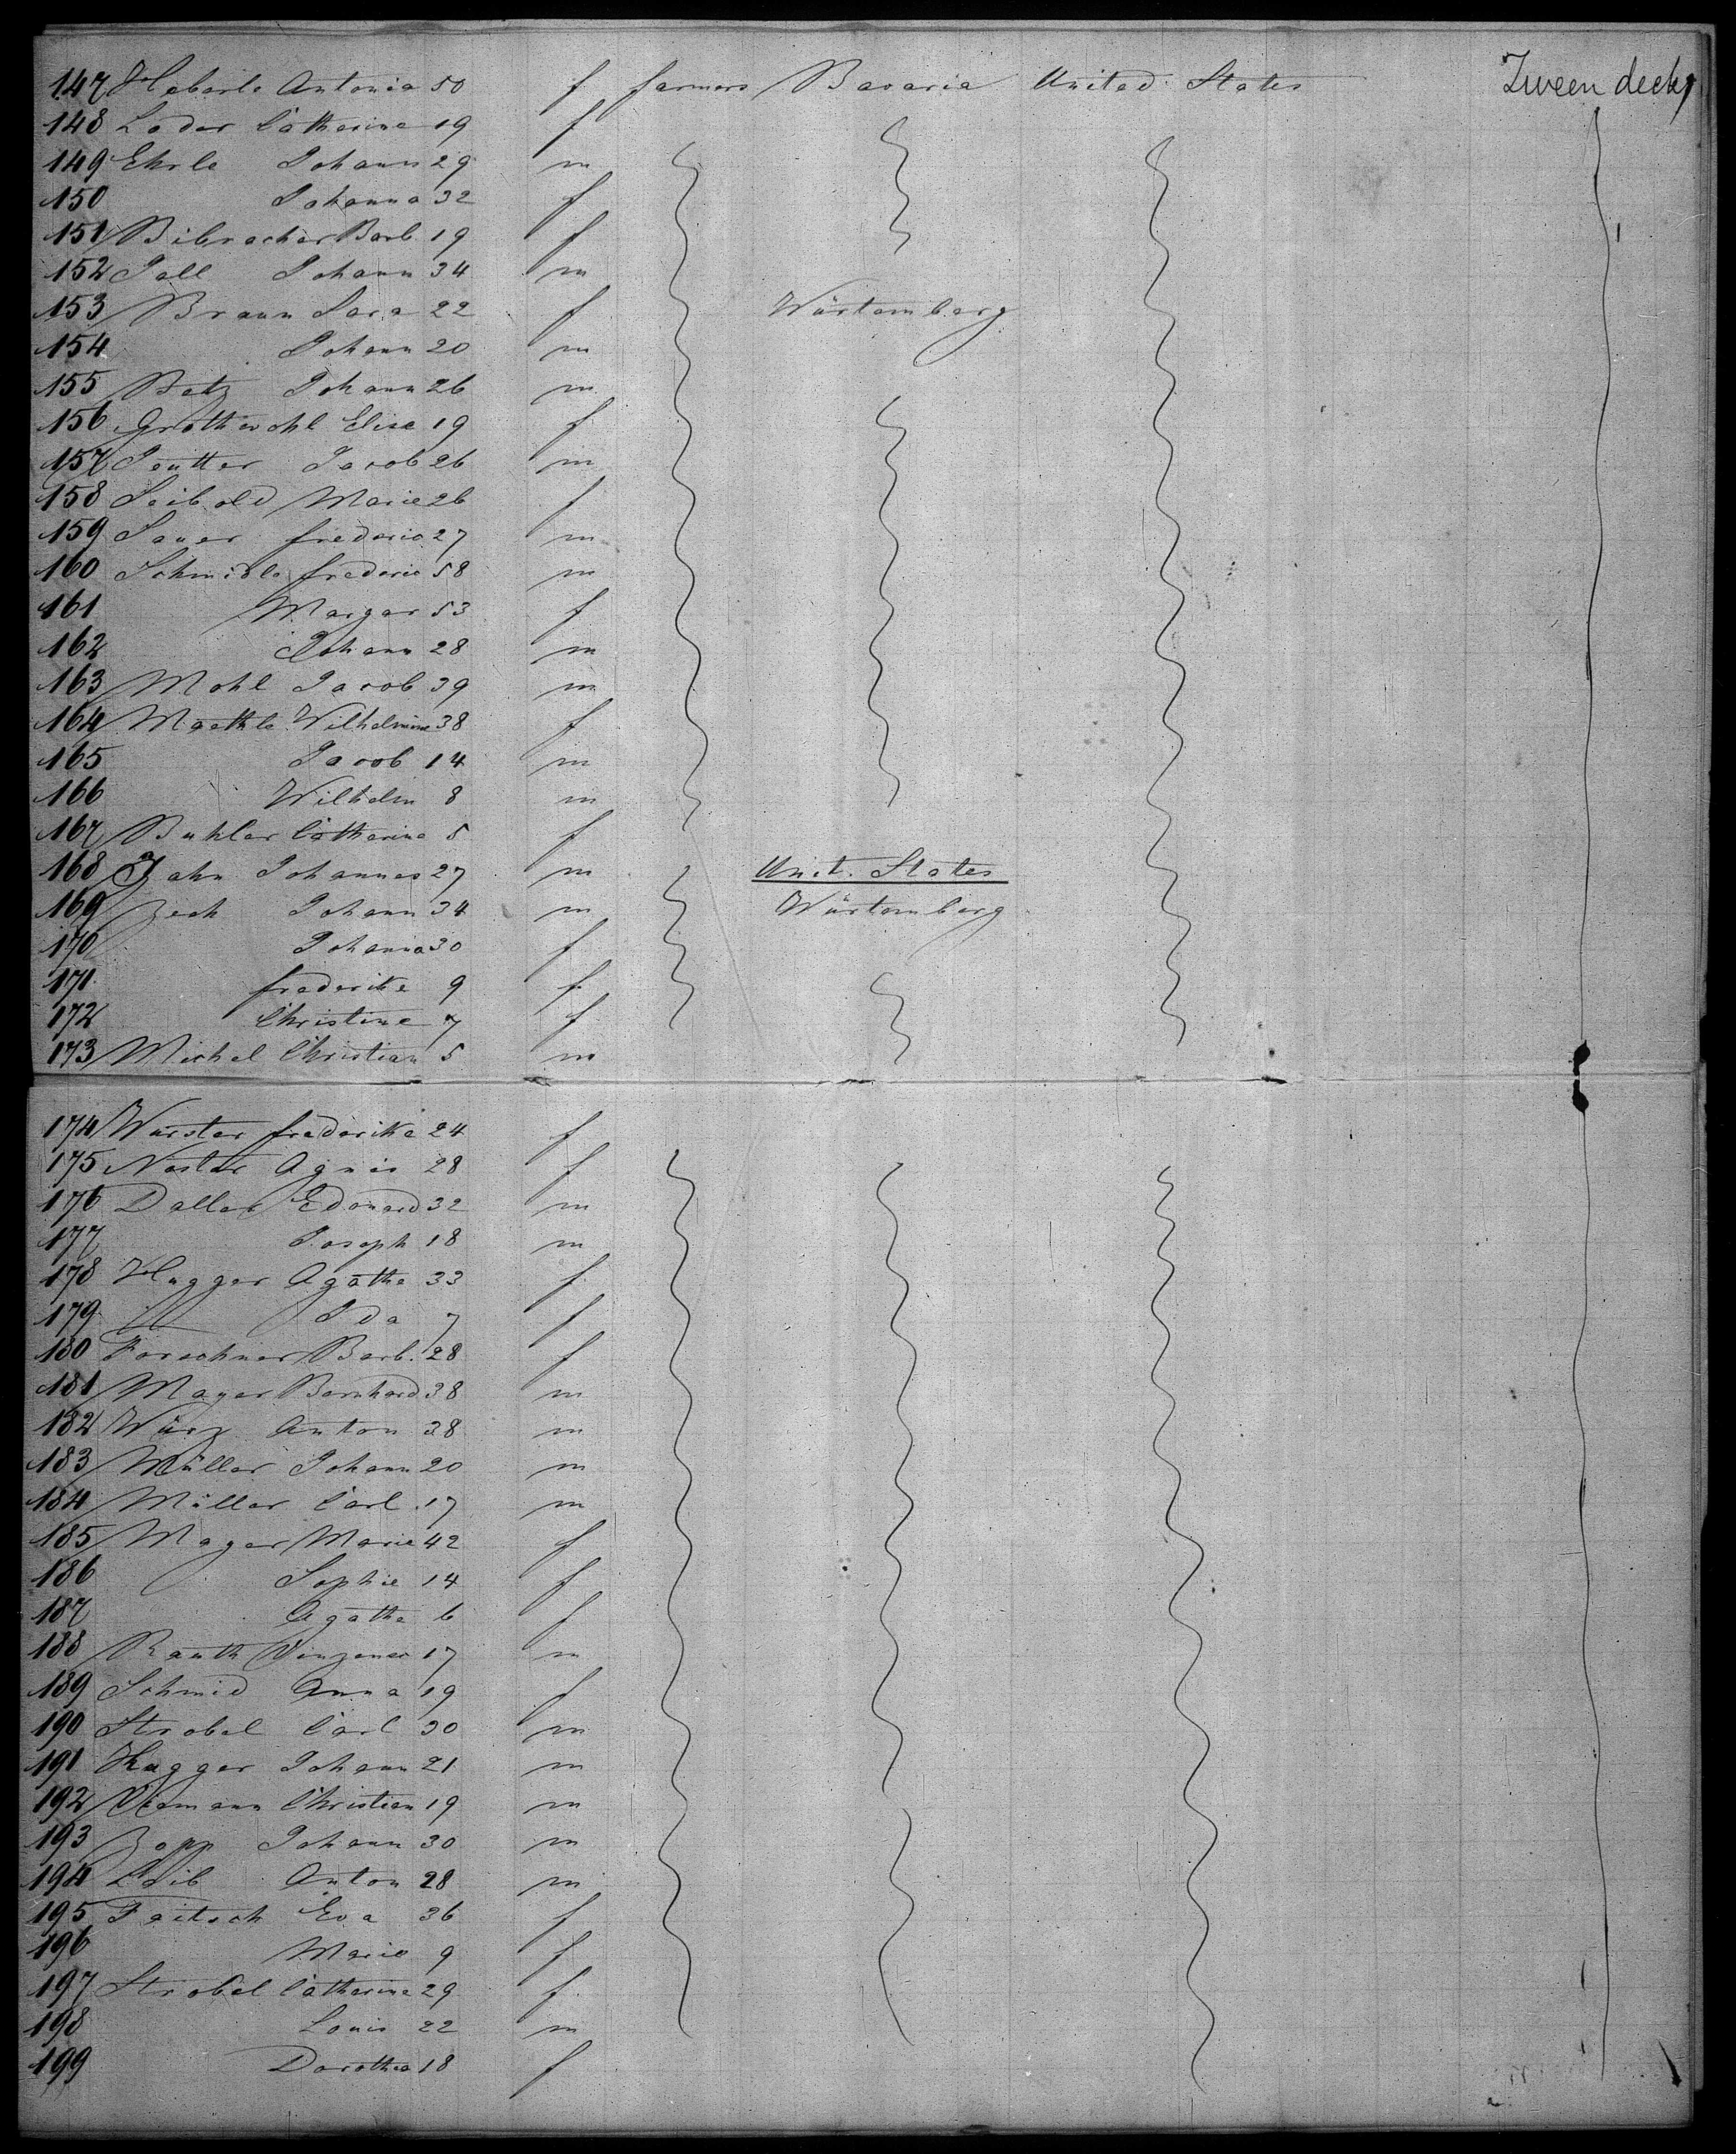 147 Heberle Antonia 50 f farmers Bavaria United States Zween deck
148 Loder Catherine 19 f
149 Ehrle Johann 29 m
150 Johanna 32 f
151 Bibracher Barb 19 f
152 Pall Johann 34 m
153 Braun Sara 22 f Würtemberg
154 Johann 20 m
155 Betz Johann 26 m
156 Grothwohl Elise 19 f
157 Jacob 26 m
158 Seibold Marie 26 f
159 Sauer frederic 27 m
160 Schmidle frederic 58 m
161 Margar 53 f
162 Johann 28 m
163 Mohl Jacob 39 m
164 Maethle Wilhelmine 38 f
165 Jacob 14 m
166 Wilhelm 8 m
167 Buhler Catherine 5 f
168 Jahn Johannes 27 m Unit. States
169 Zech Johann 34 m Würtemberg
170 Johanna 30 f
171 frederike 9 f
172 Christine 7 f
173 Michel Christian 5 m
174 Wurster frederike 24 f
175 Nester Agnes 28 f
176 Daller Edouard 32 m
177 Joseph 18 m
178 Hugger Agathe 33 f
179 Ida 7 f
180 Forschner Barb. 28 f
181 Mayer Bernhard 38 m
182 Würz Anton 38 m
183 Müller Johann 20 m
184 Müller Carl 17 m
185 Mager Marie 42 f
186 Sophie 14 f
187 Agathe 6 f
188 Rauth Vinzenes 17 m
189 Schmid Anna 19 f
190 Strobel Carl 30 m
191 Hugger Johann 21 m
192 Christian 19 m
193 Zopp Johann 30 m
194 Laib Anton 28 m
195 Faitsch Eva 36 f
196 Marie 9 f
197 Strobel Catherine 29 f
198 Louis 22 m
199 Dorothea 18 f